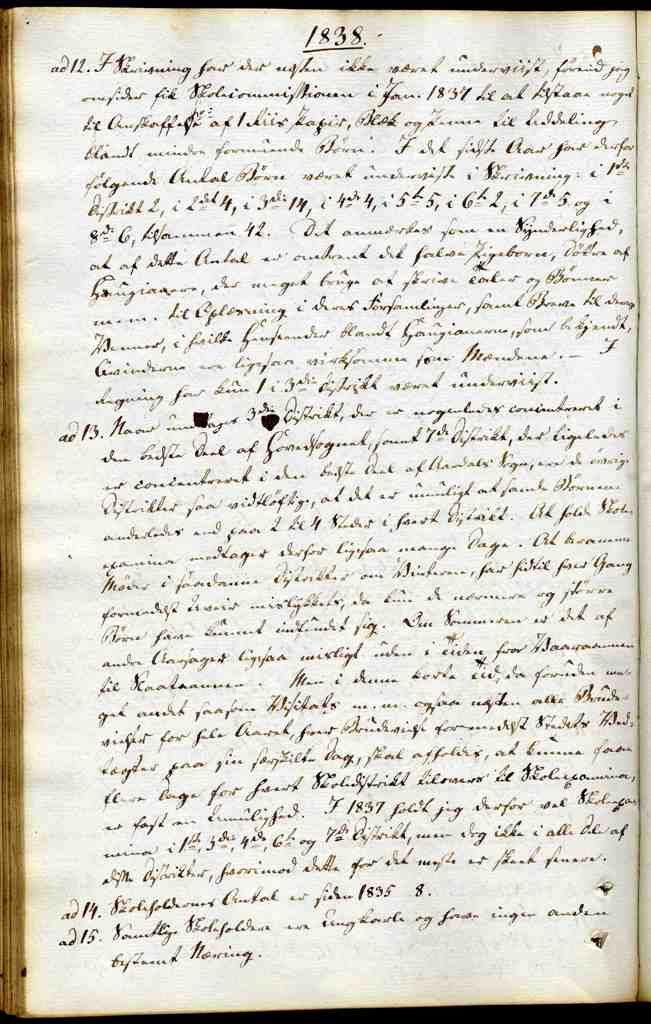 1838.
ad 12. I Skrivning har der næsten ikke været underviist, førend jeg
omsider fik Skolecommissionen i Jan. 1837 til at tilstaae noget
til Anskaffelse af 1 Riis Papir, Blæk og Penne til Uddeling
blandt mindre formuende Børn. I det sidste Aar har derfor
følgende Antal Børn været underviste i Skrivning: i 1ste
Distrikt 2, i 2det 4, i 3die 14, i 4de 4, i 5te 5, i 6te 2, i 7de 5 og i
8de 6, tilsammen 42. Det anmærkes som en Synderlighed,
at af dette Antal er omtrent det halve Pigebørn, Døttre af
Haugianere, der meget bruge at skrive Taler og Bønner
til Oplæsning i deres Forsamlinger, samt Breve til deres
Venner, i hvilke Henseender blandt Haugianerne, som bekjendt,
Qvinderne ere ligesaa virksomme som Mændene. – I
Regning har kun 1 i 3die Distrikt været underviist.
ad 13. Naar undtages 3die Distrikt, der er nogenledes concentreret i
den bedste Deel af Hovedsognet, samt 7de Distrikt, der ligeledes
er concentreret i den bedste Deel af Aardals Sogn, ere de øvrige
Distrikter saa vidtløftige, at det er umuligt at samle Børnene
anderledes end paa 2 til 4 Steder i hvert Distrikt. At holde Skole-
examina medtager derfor ligesaa mange Dage. At bramme
Møder i saadanne Distrikter om Vinteren, har hidtil hver Gang
formedelst Uveir mislykkets, da kun de nærmere og større
Børn have kunnet indfundet sig. Om Sommeren er det af
andre Aarsager ligesaa misligt uden i Tiden fra Vaaraannen
til Slaataannen. Men i denne korte Tid, da foruden me-
get andet saasom Visitats m. m. ogsaa næsten alle Brude-
vielser for hele Aaret, hver Brudevielse formedelst Stedets Ved-
tægter paa sin særskilte Dag, skal afholdes, at kunne faae
flere Dage for hvert Skoledistrikt tilovers til Skoleexamina,
er fast en Umulighed. I 1837 holdt jeg derfor vel Skoleexa-
mina i 1ste, 3die, 4de, 6te og 7de Distrikt, men dog ikke i alle Dele af
disse Distrikter, hvorimod dette for det meste er skeet senere.
ad 14. Skoleholdernes Antal er siden 1835 8.
ad 15. Samtlige Skoleholdere ere Ungkarle og have ingen anden
bestemt Næring.